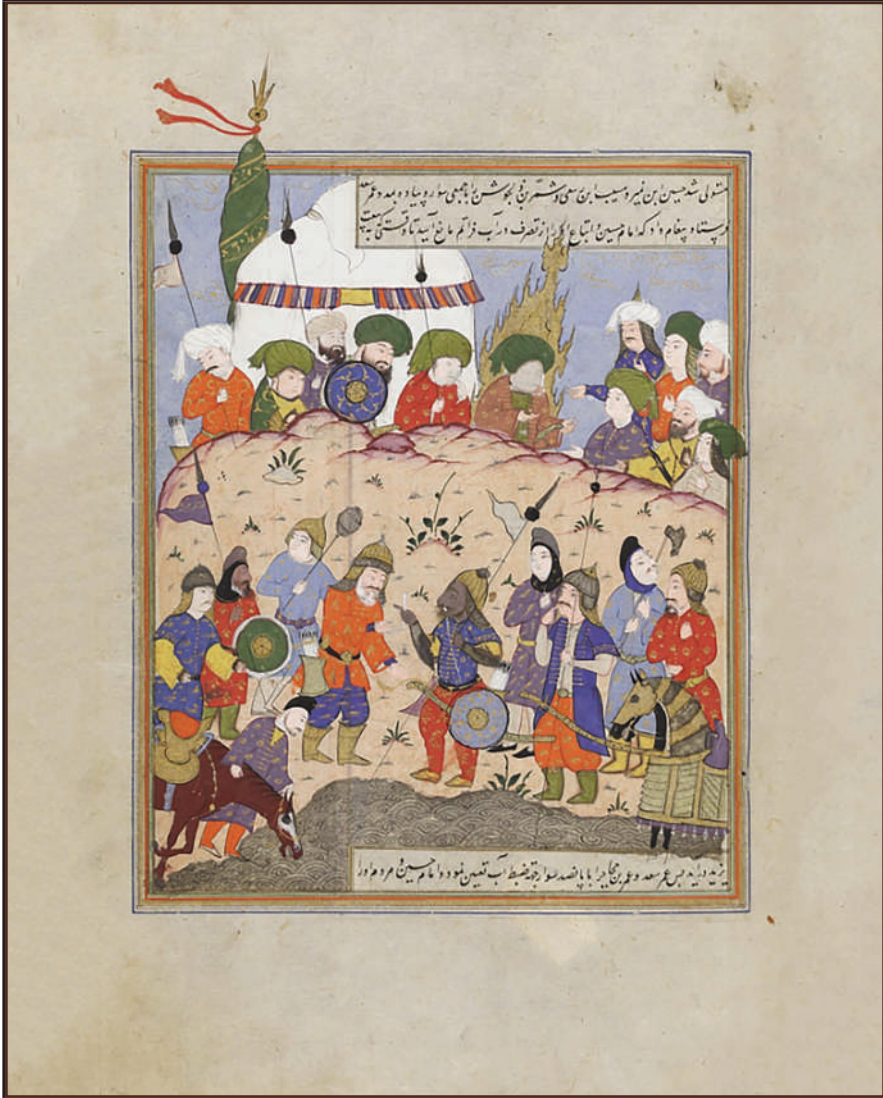 مستولی شد حسین ابن نمیر و مسیب ابن ربعی و شمر بن ذی الجوش را با جمعی سوار و پیاده و بمدد عمر سعد
فرستاد و پیغام داد که امام حسین و اتباع او را از تصرف در آب فرات مانع آیید تا وقتی که به بیعت
یزید در آید پس عمر سعد و عمر بن حجاج را با پانصد سوار جهة ضبط آب تعیین نمود و امام حسین و مردم او را